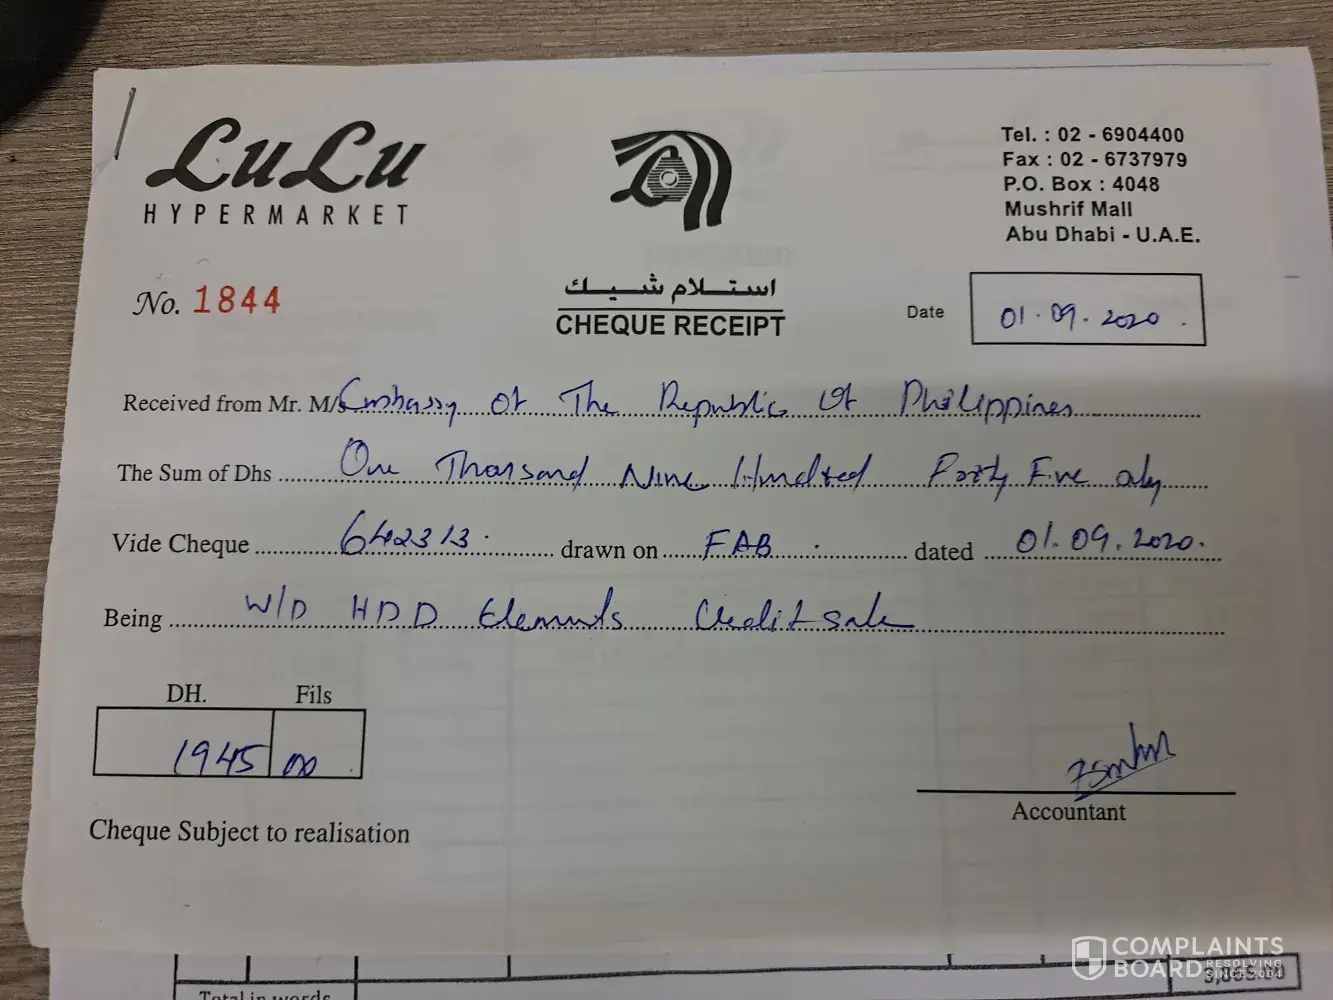 LuLu
HYPERMARKET
Tel. : 02 - 6904400
Fax : 02 - 6737979
P.O. Box : 4048
Mushrif Mall
Abu Dhabi - U.A.E.
No. 1844
استلام شيك
CHEQUE RECEIPT
Date 01.09.2020.
Received from Mr. M/s Embassy Of The Republic Of Philippines
The Sum of Dhs One Thousand Nine Hundred Forty Five only
Vide Cheque 642313. drawn on FAB. dated 01.09.2020.
Being W/D HDD Elements Credit sale
DH. Fils
1945 00
Accountant
Cheque Subject to realisation
COMPLAINTS
BOARD RESOLVING
SINCE 2004
Total in words